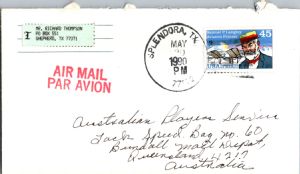 MR. RICHARD THOMPSON
PO BOX 551
SHEPHERD, TX 77371
AIR MAIL
PAR AVION
SPLENDORA, TX
MAY
1990
PM
Samuel P. Langley
Aviation Pioneer
45
USAirmail
Australian Players Service
Lock Speed Bag No. 60
Bundall Mail Depot,
Queensland 4217
Australia